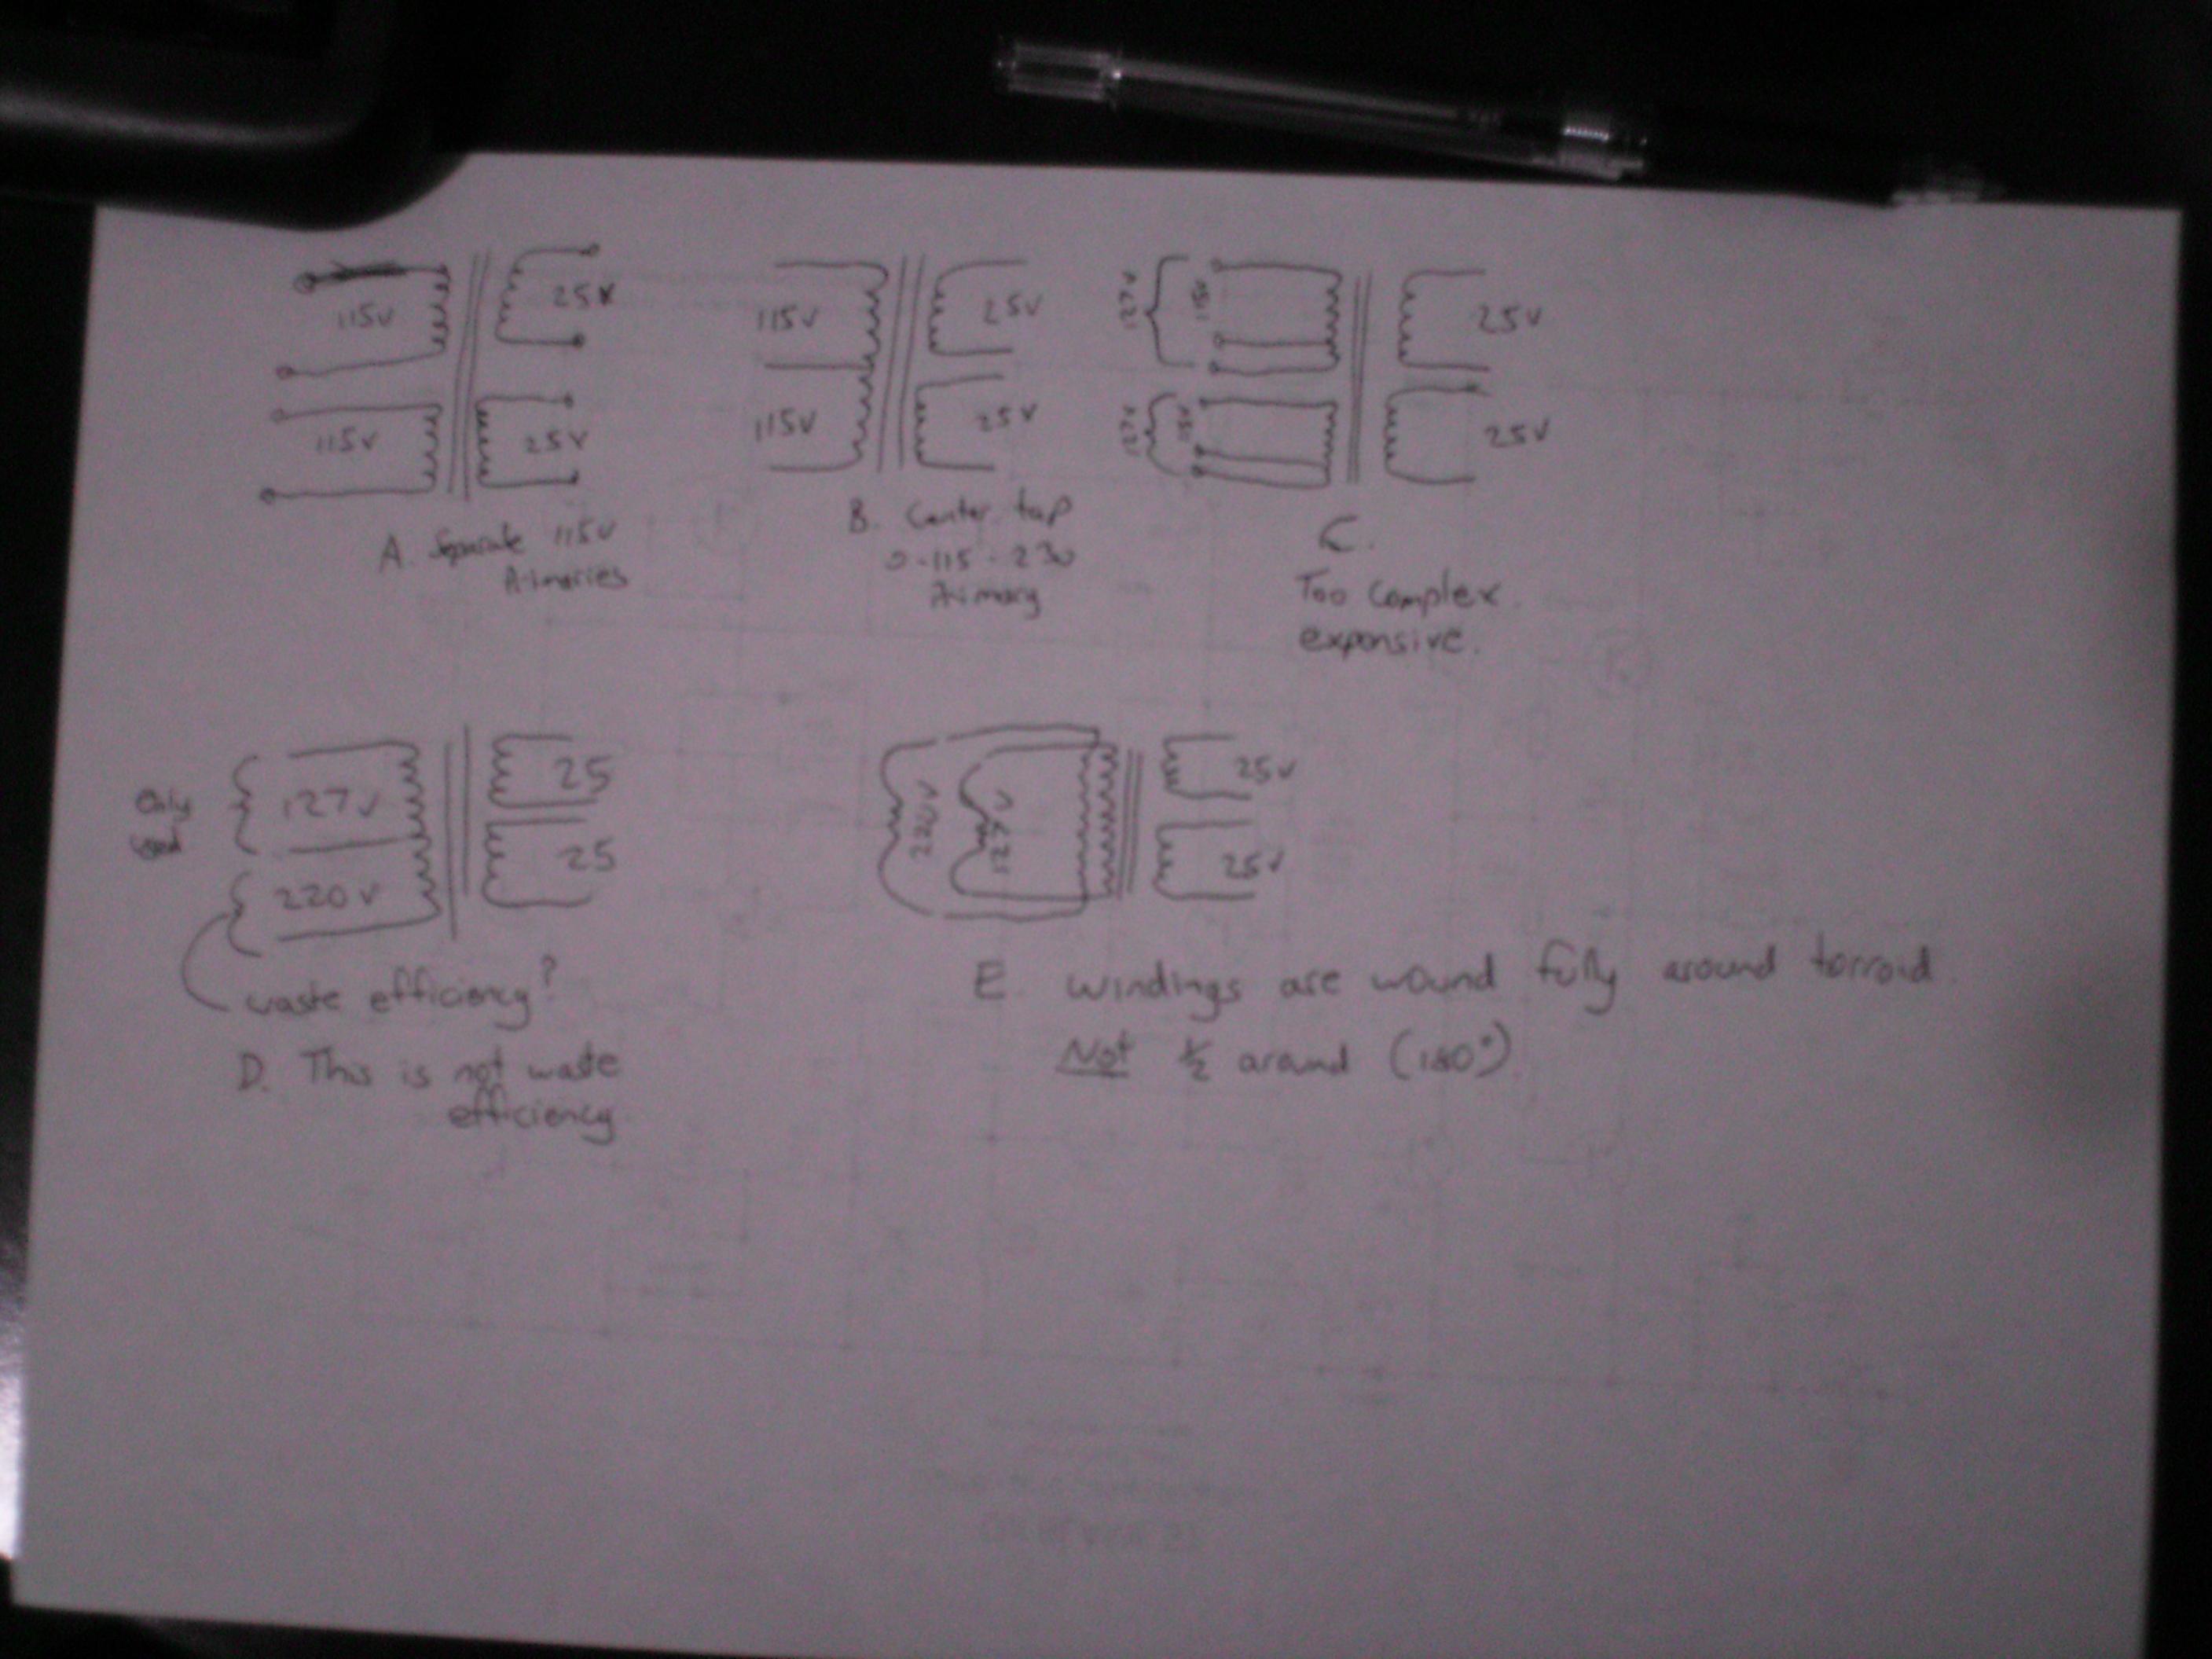 115v
25v
115v
25v
A. Separate 115v
Primaries
115v
25v
115v
25v
B. Center tap
0-115-230
Primary
127v
115v
25v
127v
25v
C.
Too Complex
expensive.
Only
used
127v
25
220v
25
waste efficiency?
D. This is not waste
efficiency
220v
127v
25v
25v
E. windings are wound fully around torroid.
Not ½ around (180°).